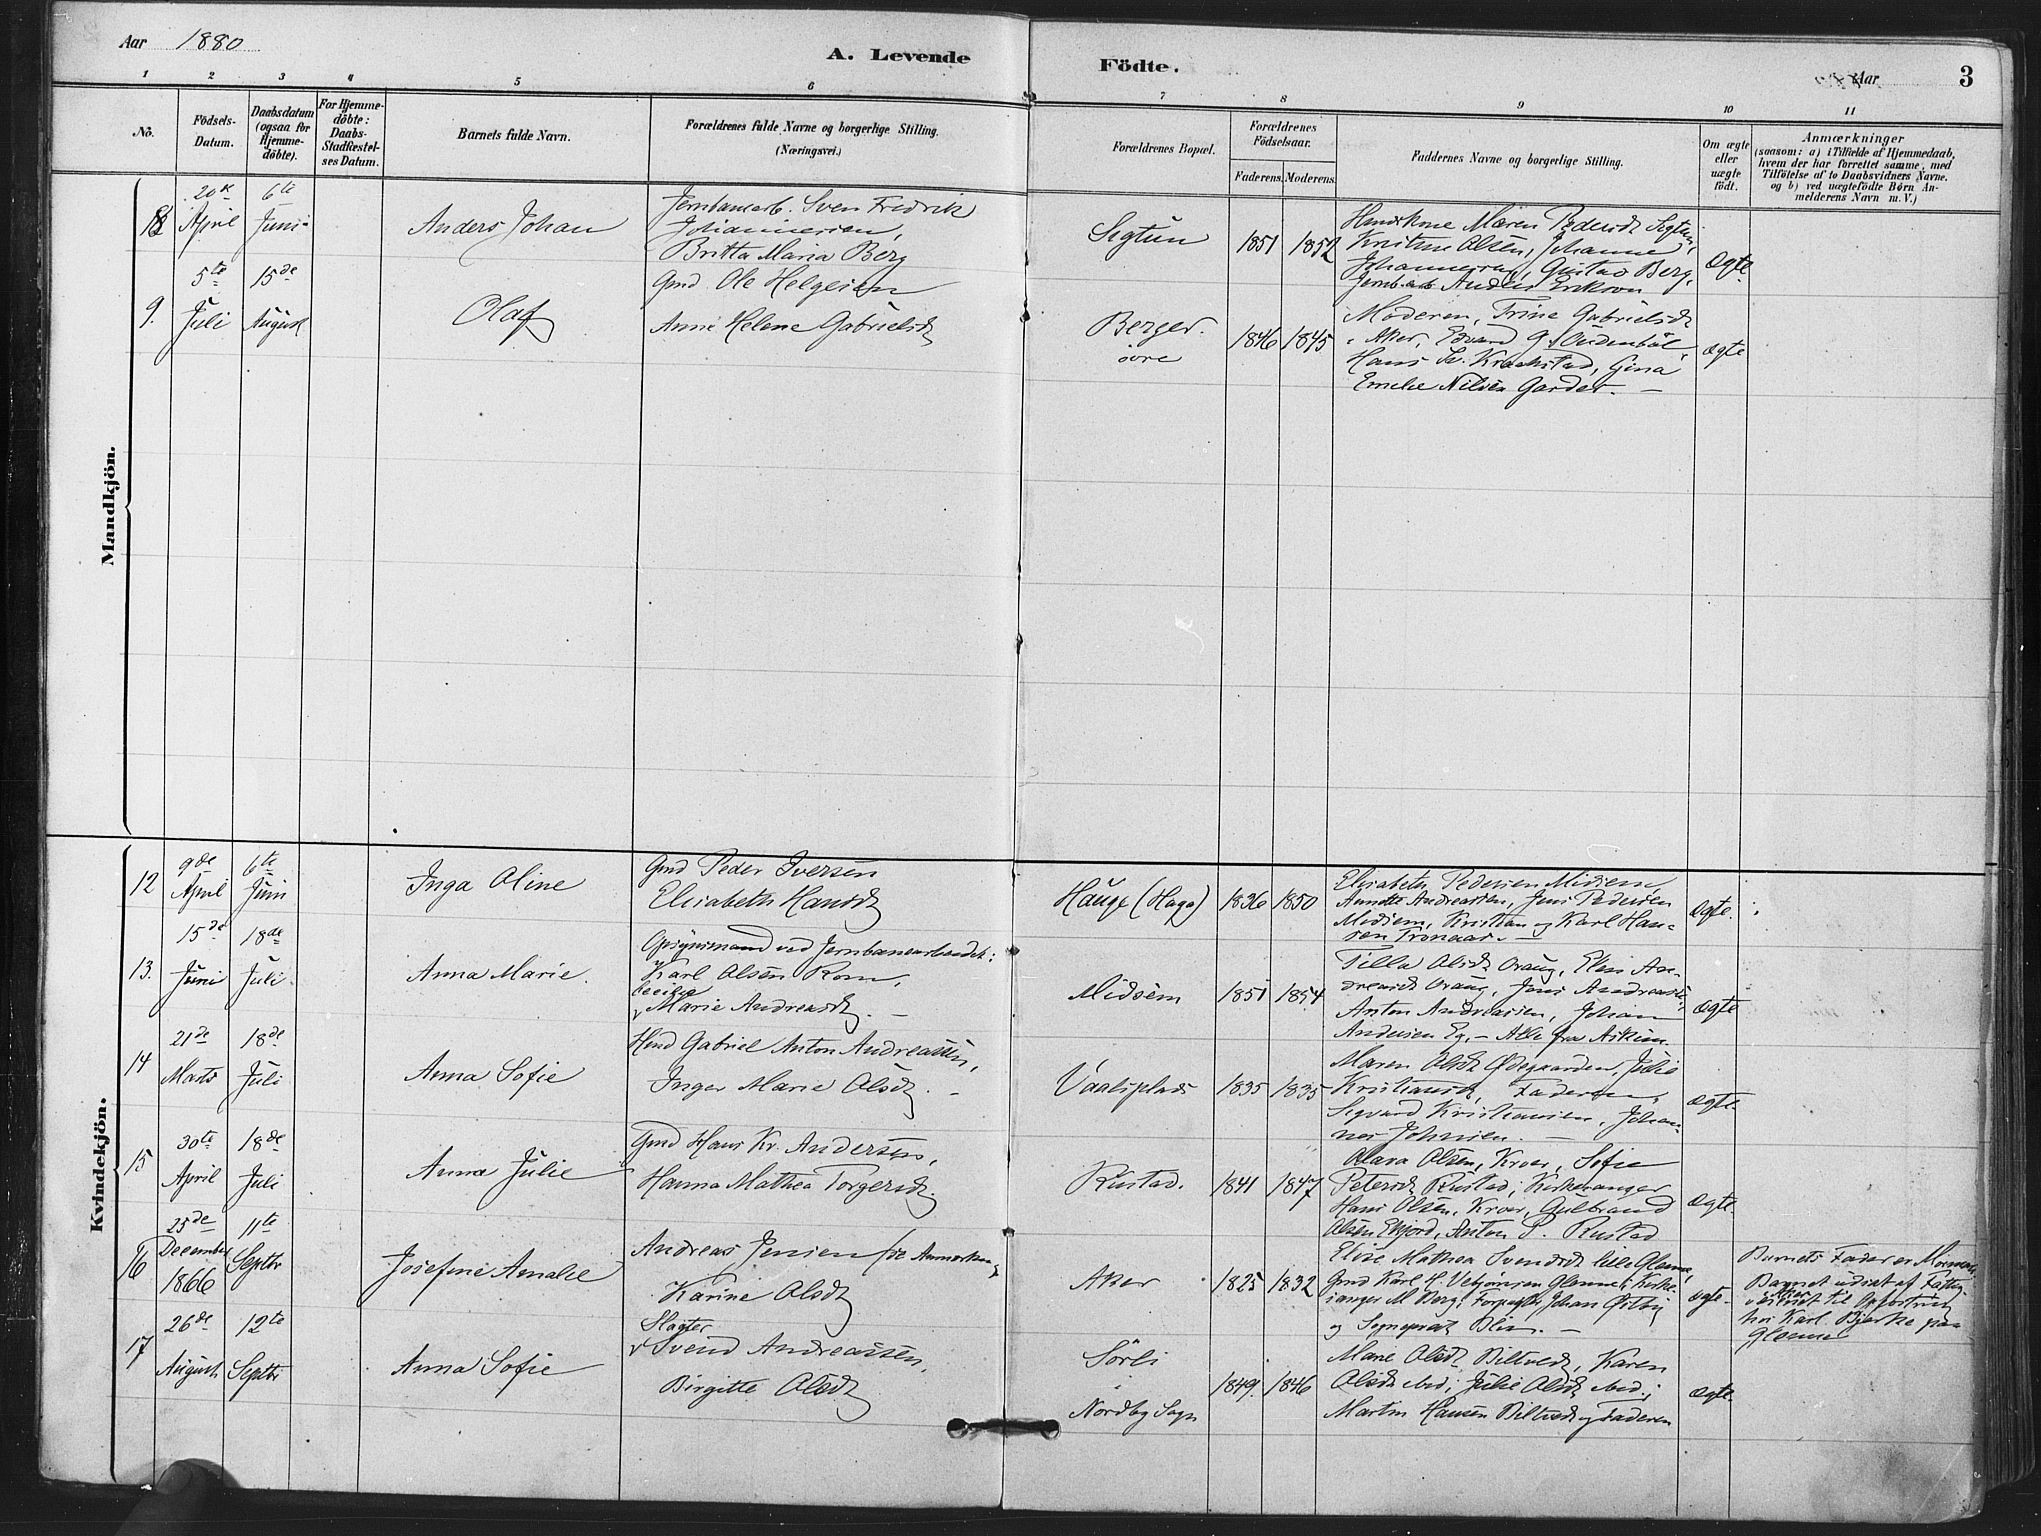 Aar 1880
A. Levende
Födte.
Aar
3
1 2 3 4 5 6 7 8 9 10 11
No.
Födsels-
Datum.
Daabsdatum
(ogsaa for
Hjemme-
döbte).
For Hjemme-
döbte:
Daabs-
Stadfæstel-
ses Datum.
Barnets fulde Navn.
Forældrenes fulde Navne og borgerlige Stilling.
(Næringsvei.)
Forældrenes Bopæl.
Forældrenes
Födselsaar.
Faderens. Moderens.
Faddernes Navne og borgerlige Stilling.
Om ægte
eller
uægte
födt.
Anmærkninger
(saasom: a) i Tilfælde af Hjemmedaab,
hvem der har forrettet samme, med
Tilföielse af to Daabsvidners Navne,
og b) ved uægtefödte Börn An-
melderens Navn m. V.)
Mandkjön.
8
20de
April
6te
Juni
Anders Johan
Jernbanearb. Sven Fredrik
Johannesen,
Britta Maria Berg
Sigtun
1851 1852
Huuskone Maren Pedersdt
Kristine Olsen, Johanne
Gustav Berg,
Jernb.arb Anders Erikson
Ægte.
9.
5te
Juli
15de
August
Olaf
Gmd Ole Helgesen
Anne Helene Gabrielsdt
Berger.
övre
1846 1845
Moderen, Trine Gabrielsdt
Aker, Edvard G.
Hans Kr. Krachstad, Gina
Emelie Nilsen Garder. —
ægte
Kvindekjön.
12
9de
April
6te
Juni
Inga Oline
Gmd Peder Iversen
Elisabeth Hansdt
Hauge (Haga)
1836 1850
Elisabeth Pedersen
Annette Andreassen, Jens Pedersen
Kristian og Karl Han-
sen Tronaas. —
ægte.
13.
15de
Juni
18de
Juli
Anna Marie.
Opsynsmand ved Jernbanearbeidet:
Karl Olsen Kom,
Cecilie
v Marie Andreasdt. —
Midsem
1851 1854
Tilla Olsdt Oraug, Elen An-
dreasdt Oraug, Jens
Anton Andreassen, Johan
Andersen Eg, — Alle fra Askim.
ægte
14
21de
Marts
18de
Juli
Anna Sofie
Hmd Gabriel Anton Andreassen,
Inger Marie Olsdt. —
Vaalsplads
1835 1835
Maren Olsdt Ødegaarden, Julie
Kristiansdt, Faderen,
Sigvard Kristiansen, Johan-
nes Johnsen. —
ægte
15
30te
April
18de
Juli
Anna Julie
Gmd Hans Kr. Andersen,
Hanna Mathea Torgersdt.
Rustad.
1841 1847
Olava Olsen, Kroer, Sofie
Petersdt Rustad; Kirkesanger
Hans Olsen, Kroer, Gulbrand
Olsen Ekjord, Anton P. Rustad
ægte.
16
25de
December
1866
11te
Septbr
Josefine Amalie
Andreas Jensen (se Anmærkning)
Karine Olsdt
Aker
1825 1832
Elise Mathea Svendsdt lille Glenne,
Gmd Karl H. Glenne; Kirke-
sanger M Berg; Johan Østby
og Sogneprest Blix. —
ægte.
Barnets Fader er Mormon.
Barnet udsat af Fattig-
væsenet til Opfostring
hos Karl Bjerke paa
Glenne
17
26de
August
12te
Septbr
Anna Sofie
Slagter
v Svend Andreassen,
Birgitte Olsdt
Sörli
Nordby Sogn
1849. 1846
Marie Olsdt Biltvedt, Karen
Olsdt ibid; Julie Olsdt ibid;
Martin Hansen Biltvedt og Faderen
ægte.